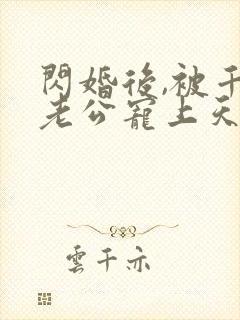 閃婚後,被千
老公寵上天
雲千亦